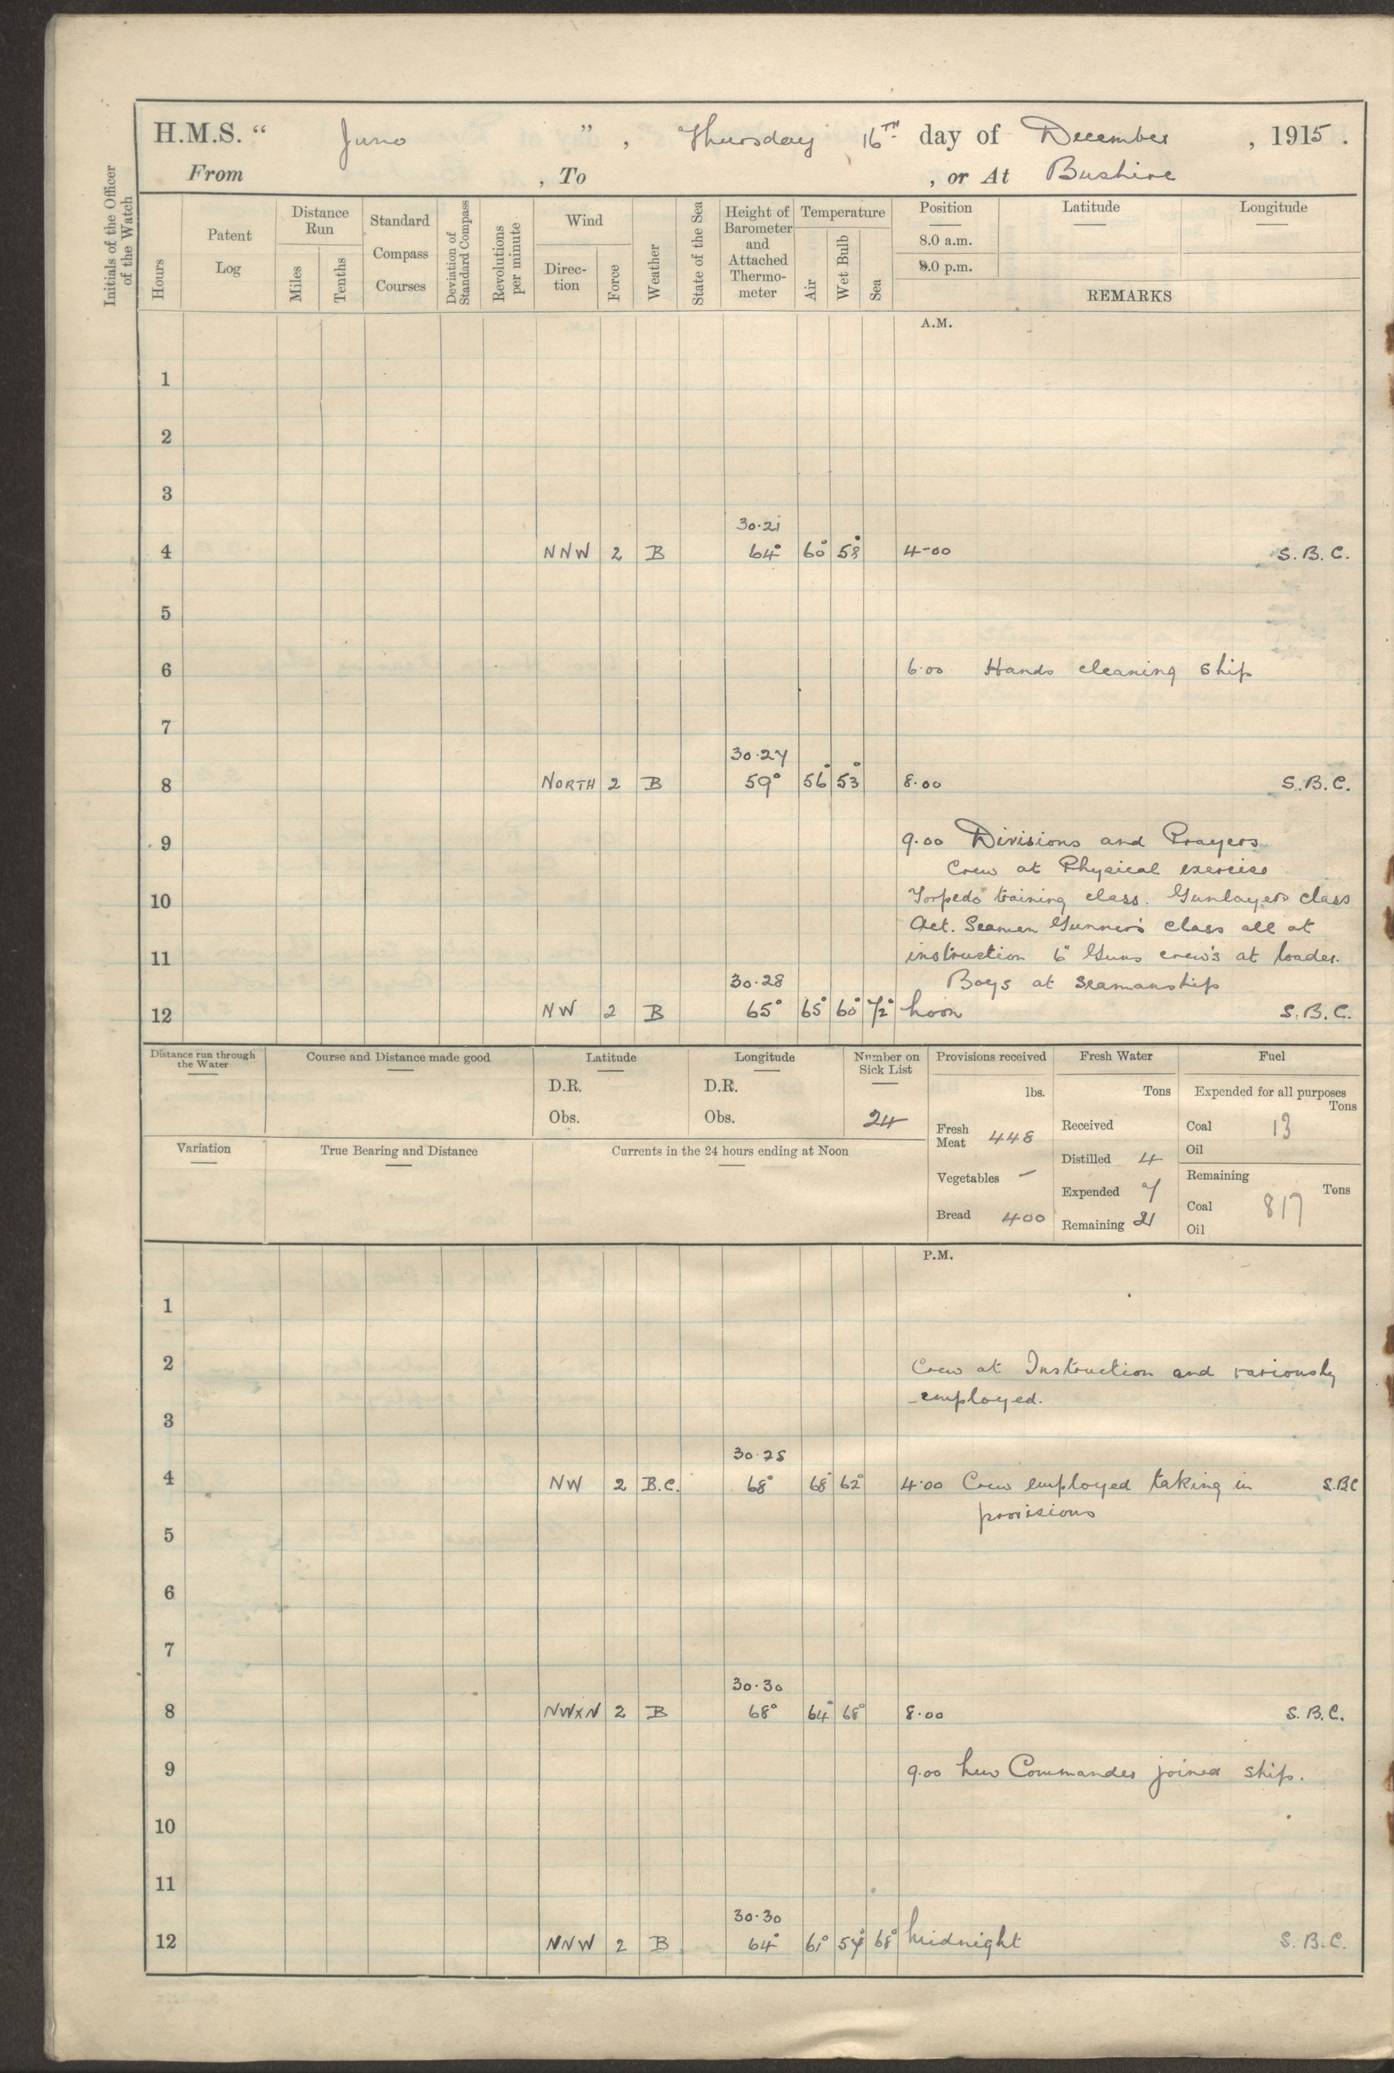 H.M.S. “ Juno ” , Thursday 16TH day of December , 1915 .
From , To , or At Bushire
Initials of the Officer of the Watch
Hours
Patent Log
Distance Run
Miles
Tenths
Standard Compass Courses
Deviation of Standard Compass
Revolutions per minute
Wind
Direc-tion
Force
Weather
State of the Sea
Height of Barometer and Attached Thermo-meter
Temperature
Air
Wet Bulb
Sea
Position Latitude Longitude
8.0 a.m.
8.0 p.m.
REMARKS
A.M.
1
2
3
30·21
4 NNW 2 B 64° 60° 58° 4-00 S.B.C.
5
6 6·00 Hands cleaning ship
7
30·27
8 NORTH 2 B 59° 56° 53° 8·00 S.B.C.
9 9·00 Divisions and Prayers
Crew at Physical exercise
10 Torpedo training class. Gunlayers class
Act. Seamen Gunner's class all at
11 instruction 6" Guns crew's at loader.
30·28 Boys at seamanship
12 NW 2 B 65° 65° 60° 72° Noon S.B.C.
Distance run through the Water
Course and Distance made good
Latitude
D.R.
Obs.
Longitude
D.R.
Obs.
Number on Sick List
24
Provisions received
lbs.
Fresh Meat 448
Vegetables –
Bread 400
Fresh Water
Tons
Received
Distilled 4
Expended 7
Remaining 21
Fuel
Expended for all purposes
Tons
Coal 13
Oil
Remaining
Tons
Coal 817
Oil
Variation
True Bearing and Distance
Currents in the 24 hours ending at Noon
P.M.
1
2 Crew at Instruction and variously
employed.
3
30·25
4 NW 2 B.C. 68° 68° 62° 4·00 Crew employed taking in S.B.C
provisions
5
6
7
30·30
8 NWxN 2 B 68° 64° 68° 8·00 S.B.C.
9 9·00 New Commander joined ship.
10
11
30·30
12 NNW 2 B 64° 61° 57° 68° Midnight S.B.C.